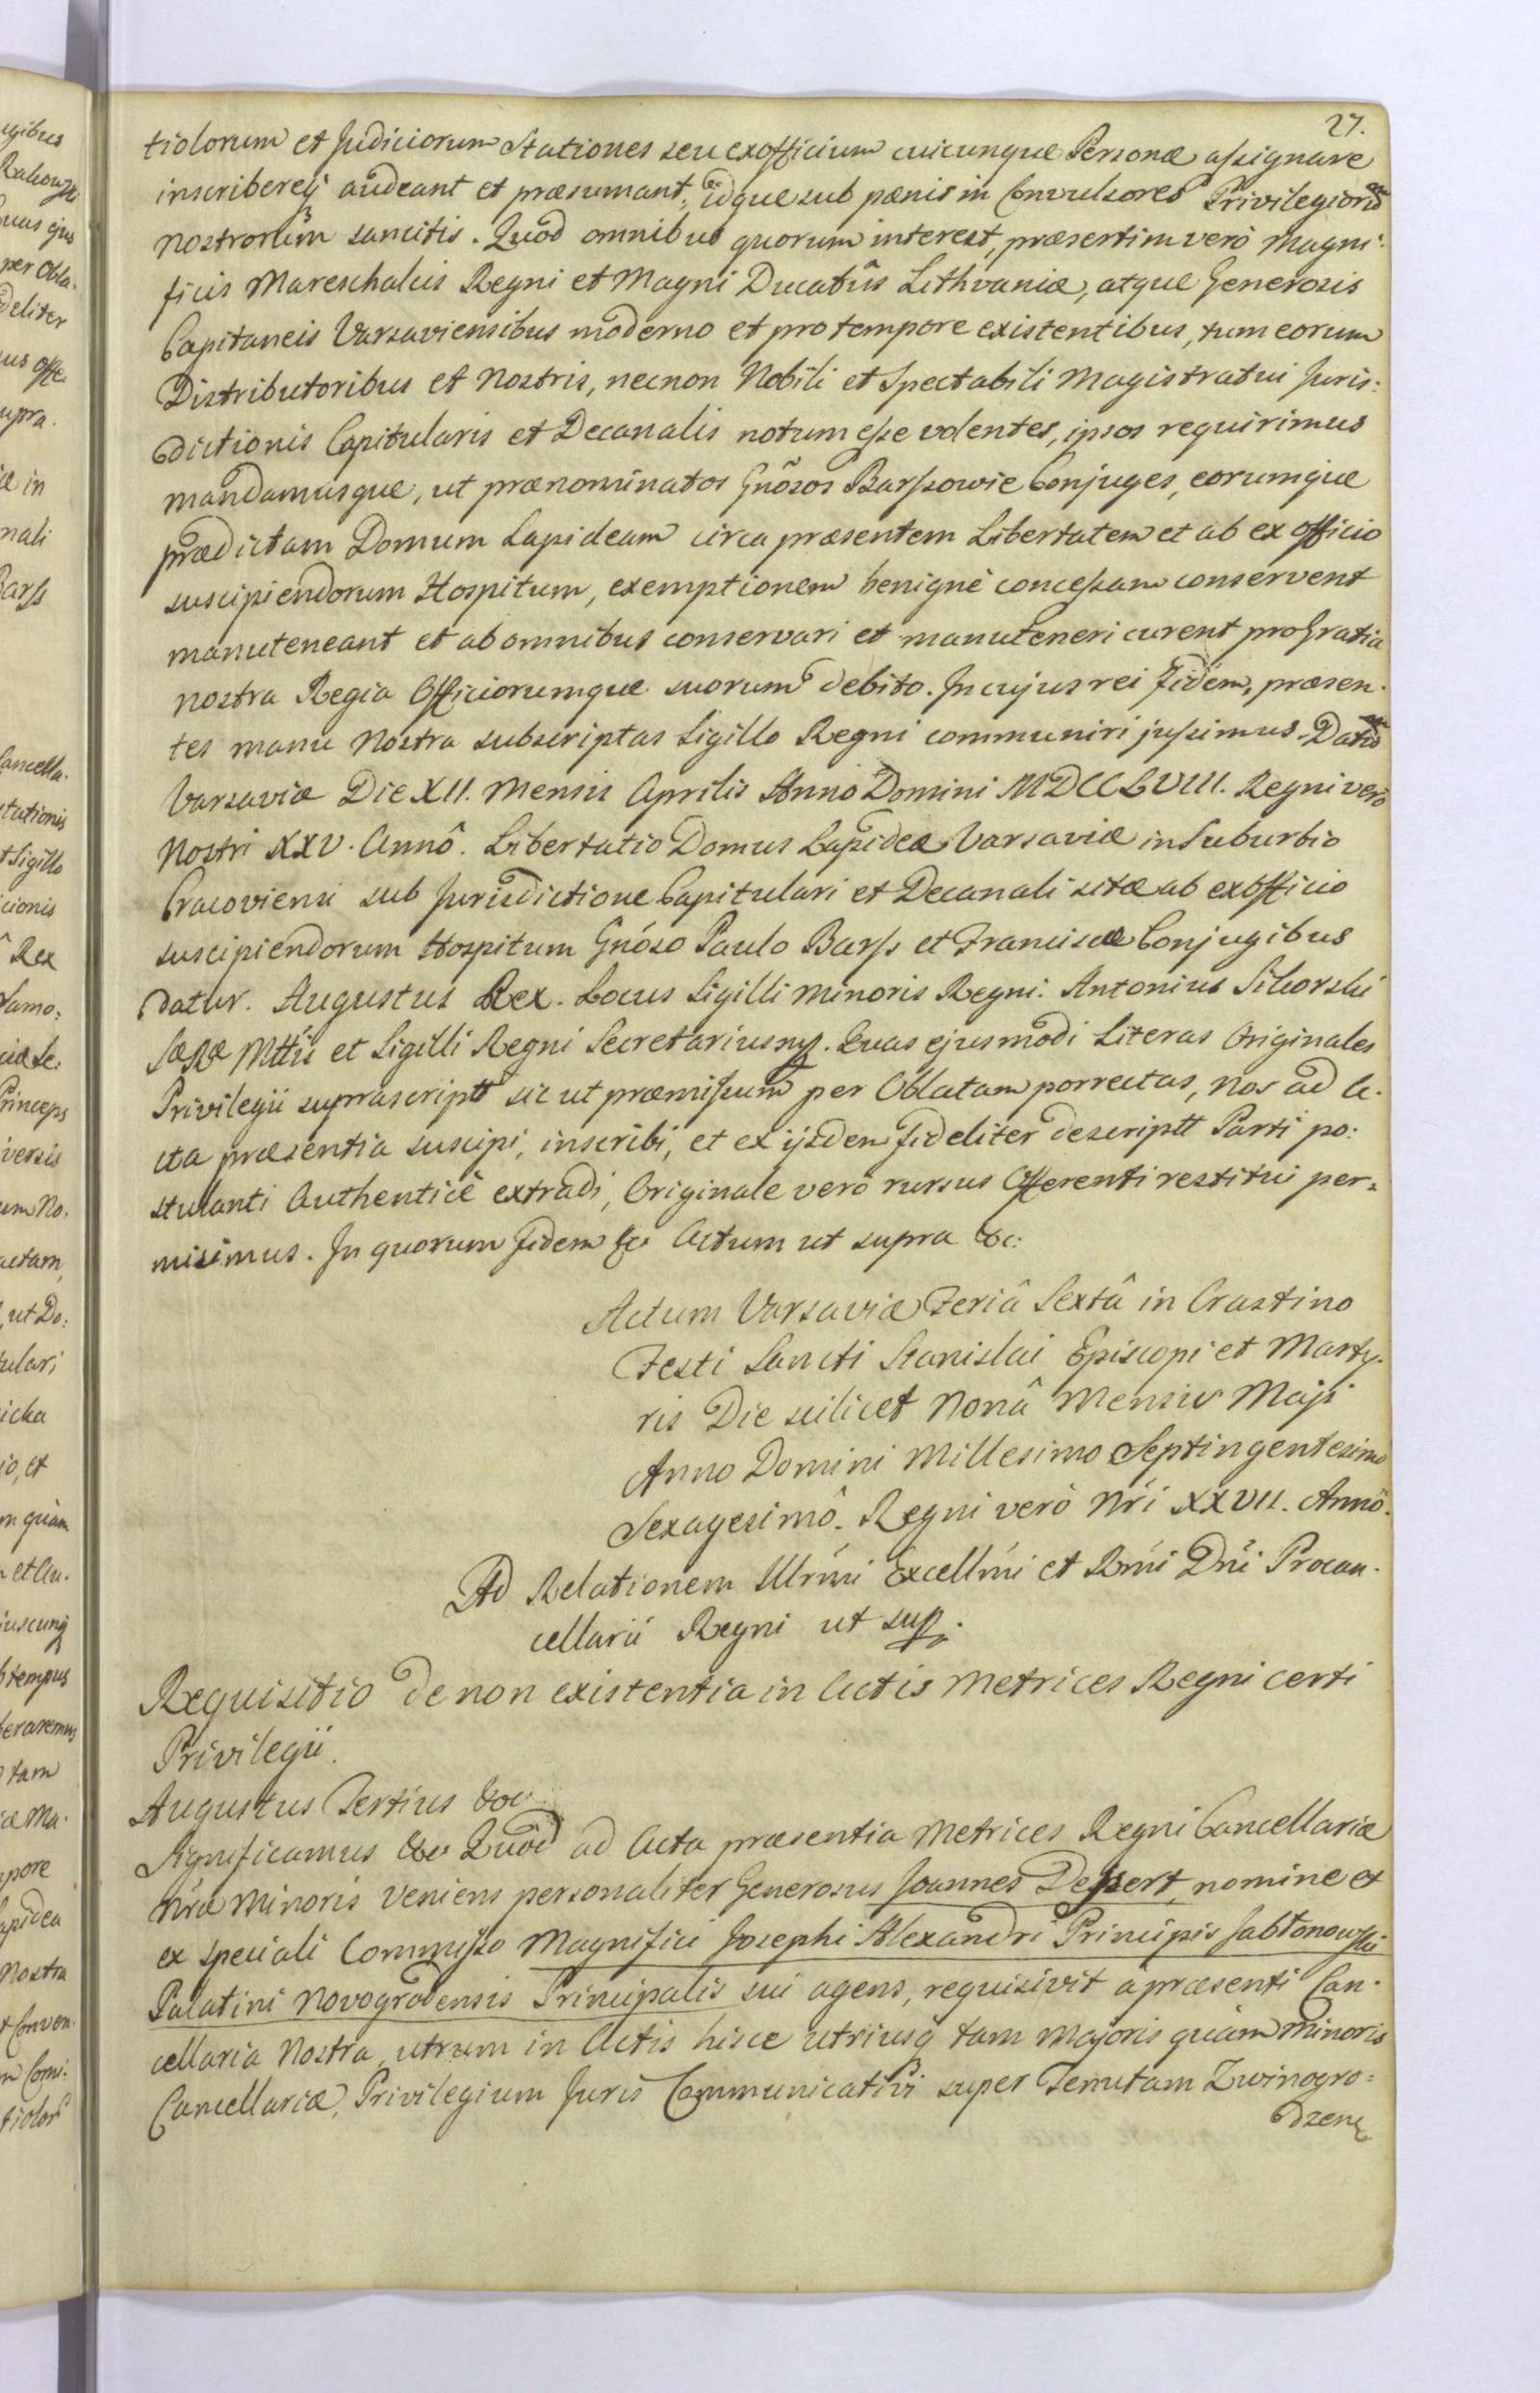 27.
tiolorum et Judiciorum Stationes seu exofficium cuicunque Personæ assignare
inscribereq̃ audeant et præsumant, idque sub pænis in Convulsores Privilegiorũ
nostrorum sancitis. Quod omnibus quorum interest, præsertim verò Magni:
ficis Mareschalcis Regni et Magni Ducatûs Lithvaniæ, atque Generosis
Capitaneis Varsaviensibus moderno et pro tempore existentibus, tum eorum
Distributoribus et Nostris, necnon Nobili et Spectabili Magistratui Juris:
dictionis Capitularis et Decanalis notum esse volentes, ipsos requirimus
mandamusque, ut prænominatos Gnõsos Barssowie Conjuges, eorumque
prædictam Domum Lapideam circa præsentem Libertatem et ab ex officio
suscipiendorum Hospitum, exemptionem benignè concessam conservent
manuteneant et ab omnibus conservari et manuteneri curent pro Gratia
nostra Regia Officiorumque suorum debito. In cujus rei Fidem, præsen-
tes manu Nostra subscriptas Sigillo Regni communiri jussimus. Datũ
Varsaviæ Die XII. Mensis Aprilis Anno Domini MDCCLVIII. Regni verò
Nostri XXV. Annô. Libertatio Domus Lapideæ Varsaviæ in Suburbio
Cracoviensi sub Jurisdictione Capitulari et Decanali sitæ ab exofficio
suscipiendorum Hospitum Gnóso Paulo Barss et Franciscæ Conjugibus
datur. Augustus Rex. Locus Sigilli Minoris Regni. Antonius Sikorski
SæRæ Mttis et Sigilli Regni Secretarius mp. Quas ejusmodi Literas Originales
Privilegii suprascriptt sic ut præmissum per Oblatam porrectas, nos ad A-
cta præsentia suscipi, inscribi, et ex ijsdem fideliter descriptt Parti po:
stulanti Authenticè extradi, Originale verò rursus Offerenti restitui per-
misimus. In quorum Fidem &c Actum ut supra &c:
Actum Varsaviæ Feriâ Sextâ in Crastino
Festi Sancti Stanislai Episcopi et Marty-
ris Die scilicet Nonâ Mensis Maji
Anno Domini Millesimo Septingentesimo
Sexagesimô. Regni verò Nri XXVII. Annô.
Ad Relationem Illrmi Excellmi et Rmi Dni Procan-
cellarii Regni ut sup.
Requisitio de non existentia in Actis Metrices Regni certi
Privilegii.
Augustus Tertius &c
Significamus &c Quod ad Acta præsentia Metrices Regni Cancellariæ
Nræ Minoris veniens personaliter Generosus Joannes Depert, nomine et
ex speciali Commisso Magnifici Josephi Alexandri Principis Jabłonowski
Palatini Novogrodensis Principalis sui agens, requisivit a præsenti Can-
cellaria Nostra, utrum in Actis hisce utriusq tam Majoris quàm Minoris
Cancellariæ, Privilegium Juris Communicativi super Tenutam Zwinogro=
dzenę